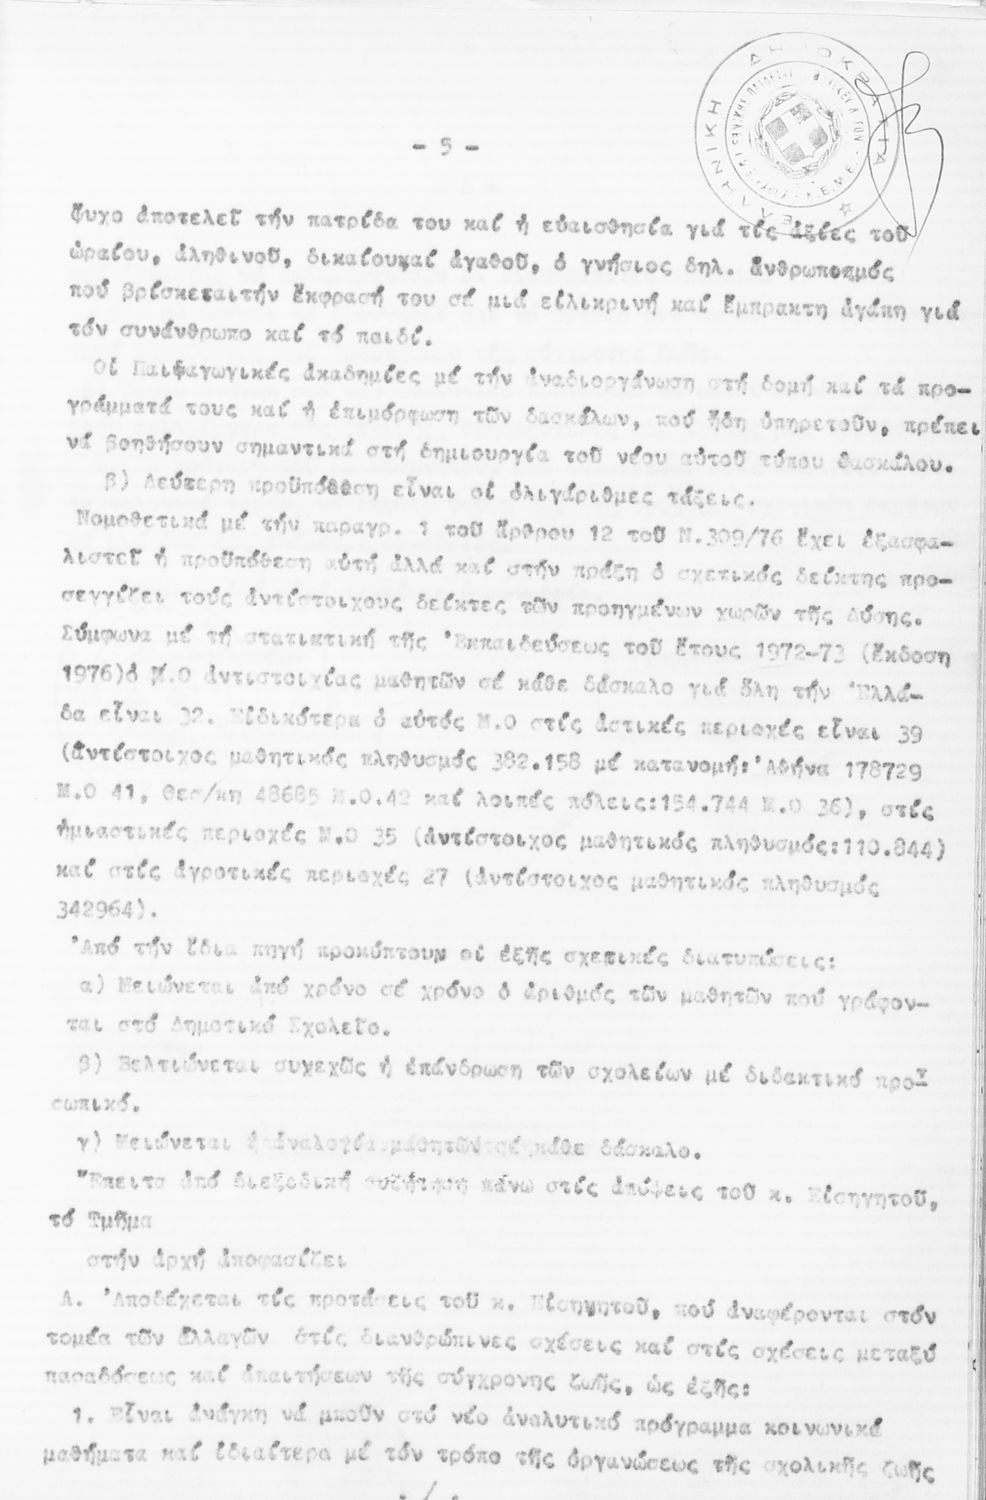 - 5 -
ΕΛΛΗΝΙΚΗ ΔΗΜΟΚΡΑΤΙΑ
ψυχο ἀποτελεῖ τήν πατρίδα του καί ἡ εὐαισθησία γιά τίς ἀξίες τοῦ
ὡραίου, ἀληθινοῦ, δικαίουκαί ἀγαθοῦ, ὁ γνήσιος δηλ. ἀνθρωπισμός
πού βρίσκεταιτήν ἔκφρασή του σέ μιά εἰλικρινή καί ἔμπρακτη ἀγάπη γιά
τόν συνάνθρωπο καί τό παιδί.
Οἱ Παιδαγωγικές ἀκαδημίες μέ τήν ἀναδιοργάνωση στή δομή καί τά προ-
γράμματά τους καί ἡ ἐπιμόρφωση τῶν δασκάλων, πού ἤδη ὑπηρετοῦν, πρέπει
νά βοηθήσουν σημαντικά στή δημιουργία τοῦ νέου αὐτοῦ τύπου δασκάλου.
β) Δεύτερη προϋπόθεση εἶναι οἱ ὀλιγάριθμες τάξεις.
Νομοθετικά μέ τήν παραγρ. 1 τοῦ ἄρθρου 12 τοῦ Ν.309/76 ἔχει ἐξασφα-
λιστεῖ ἡ προϋπόθεση αὐτή ἀλλά καί στήν πράξη ὁ σχετικός δείκτης προ-
σεγγίζει τούς ἀντίστοιχους δείκτες τῶν προηγμένων χωρῶν τῆς Δύσης.
Σύμφωνα μέ τή στατιστική τῆς Ἐκπαιδεύσεως τοῦ ἔτους 1972-73 (ἔκδοση
1976)ὁ Μ.Ο ἀντιστοιχίας μαθητῶν σέ κάθε δάσκαλο γιά ὅλη τήν Ἑλλά-
δα εἶναι 32. Εἰδικότερα ὁ αὐτός Μ.Ο στίς ἀστικές περιοχές εἶναι 39
(ἀντίστοιχος μαθητικός πληθυσμός 382.158 μέ κατανομή:Ἀθήνα 178729
Μ.Ο 41, Θεσ/κη 48685 Μ.Ο.42 καί λοιπές πόλεις:154.744 Μ.Ο 36), στίς
ἡμιαστικές περιοχές Μ.Ο 35 (ἀντίστοιχος μαθητικός πληθυσμός:110.844)
καί στίς ἀγροτικές περιοχές 27 (ἀντίστοιχος μαθητικός πληθυσμός
342964).
Ἀπό τήν ἴδια πηγή προκύπτουν οἱ ἑξῆς σχετικές διατυπώσεις:
α) Μειώνεται ἀπό χρόνο σέ χρόνο ὁ ἀριθμός τῶν μαθητῶν πού γράφον-
ται στό Δημοτικό Σχολεῖο.
β) Βελτιώνεται συνεχῶς ἡ ἐπάνδρωση τῶν σχολείων μέ διδακτικό προ-
σωπικό.
γ) Μειώνεται ἡ ἀναλογία μαθητῶν σέ κάθε δάσκαλο.
Ἔπειτα ἀπό διεξοδική συζήτηση πάνω στίς ἀπόψεις τοῦ κ. Εἰσηγητοῦ,
τό Τμῆμα
στήν ἀρχή ἀποφασίζει
Α. Ἀποδέχεται τίς προτάσεις τοῦ κ. Εἰσηγητοῦ, πού ἀναφέρονται στόν
τομέα τῶν ἀλλαγῶν στίς διανθρώπινες σχέσεις καί στίς σχέσεις μεταξύ
παραδόσεως καί ἀπαιτήσεων τῆς σύγχρονης ζωῆς, ὡς ἑξῆς:
1. Εἶναι ἀνάγκη νά μποῦν στό νέο ἀναλυτικό πρόγραμμα κοινωνικά
μαθήματα καί ἰδιαίτερα μέ τόν τρόπο τῆς ὀργανώσεως τῆς σχολικῆς ζωῆς
./.